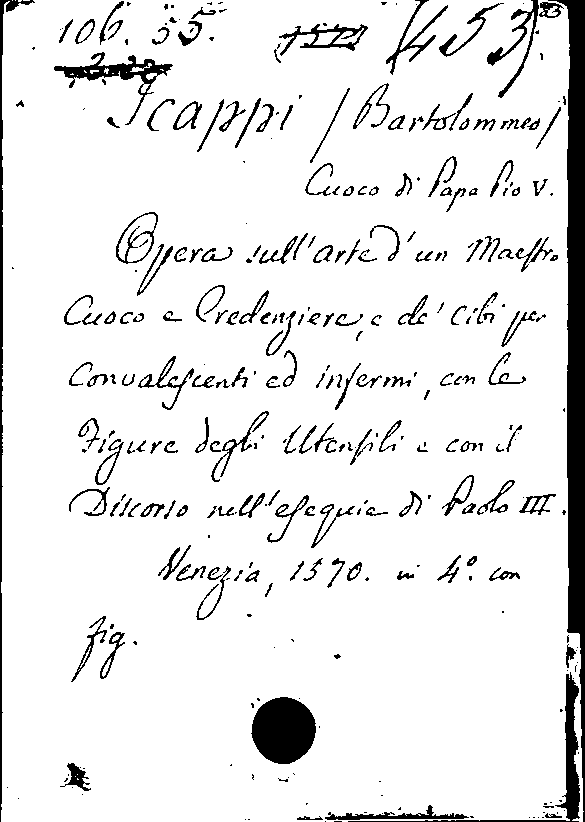 106. 55. (453)
Scappi /Bartolommeo/
Cuoco di Papa Pio V.
Opera sull'arte d'un Maestro
Cuoco e Credenziere, e de' cibi per
Convalescenti ed infermi, con le
Figure degli Utensili e con il
Discorso nell'esequie di Paolo III.
Venezia, 1570. in 4º. con
fig.